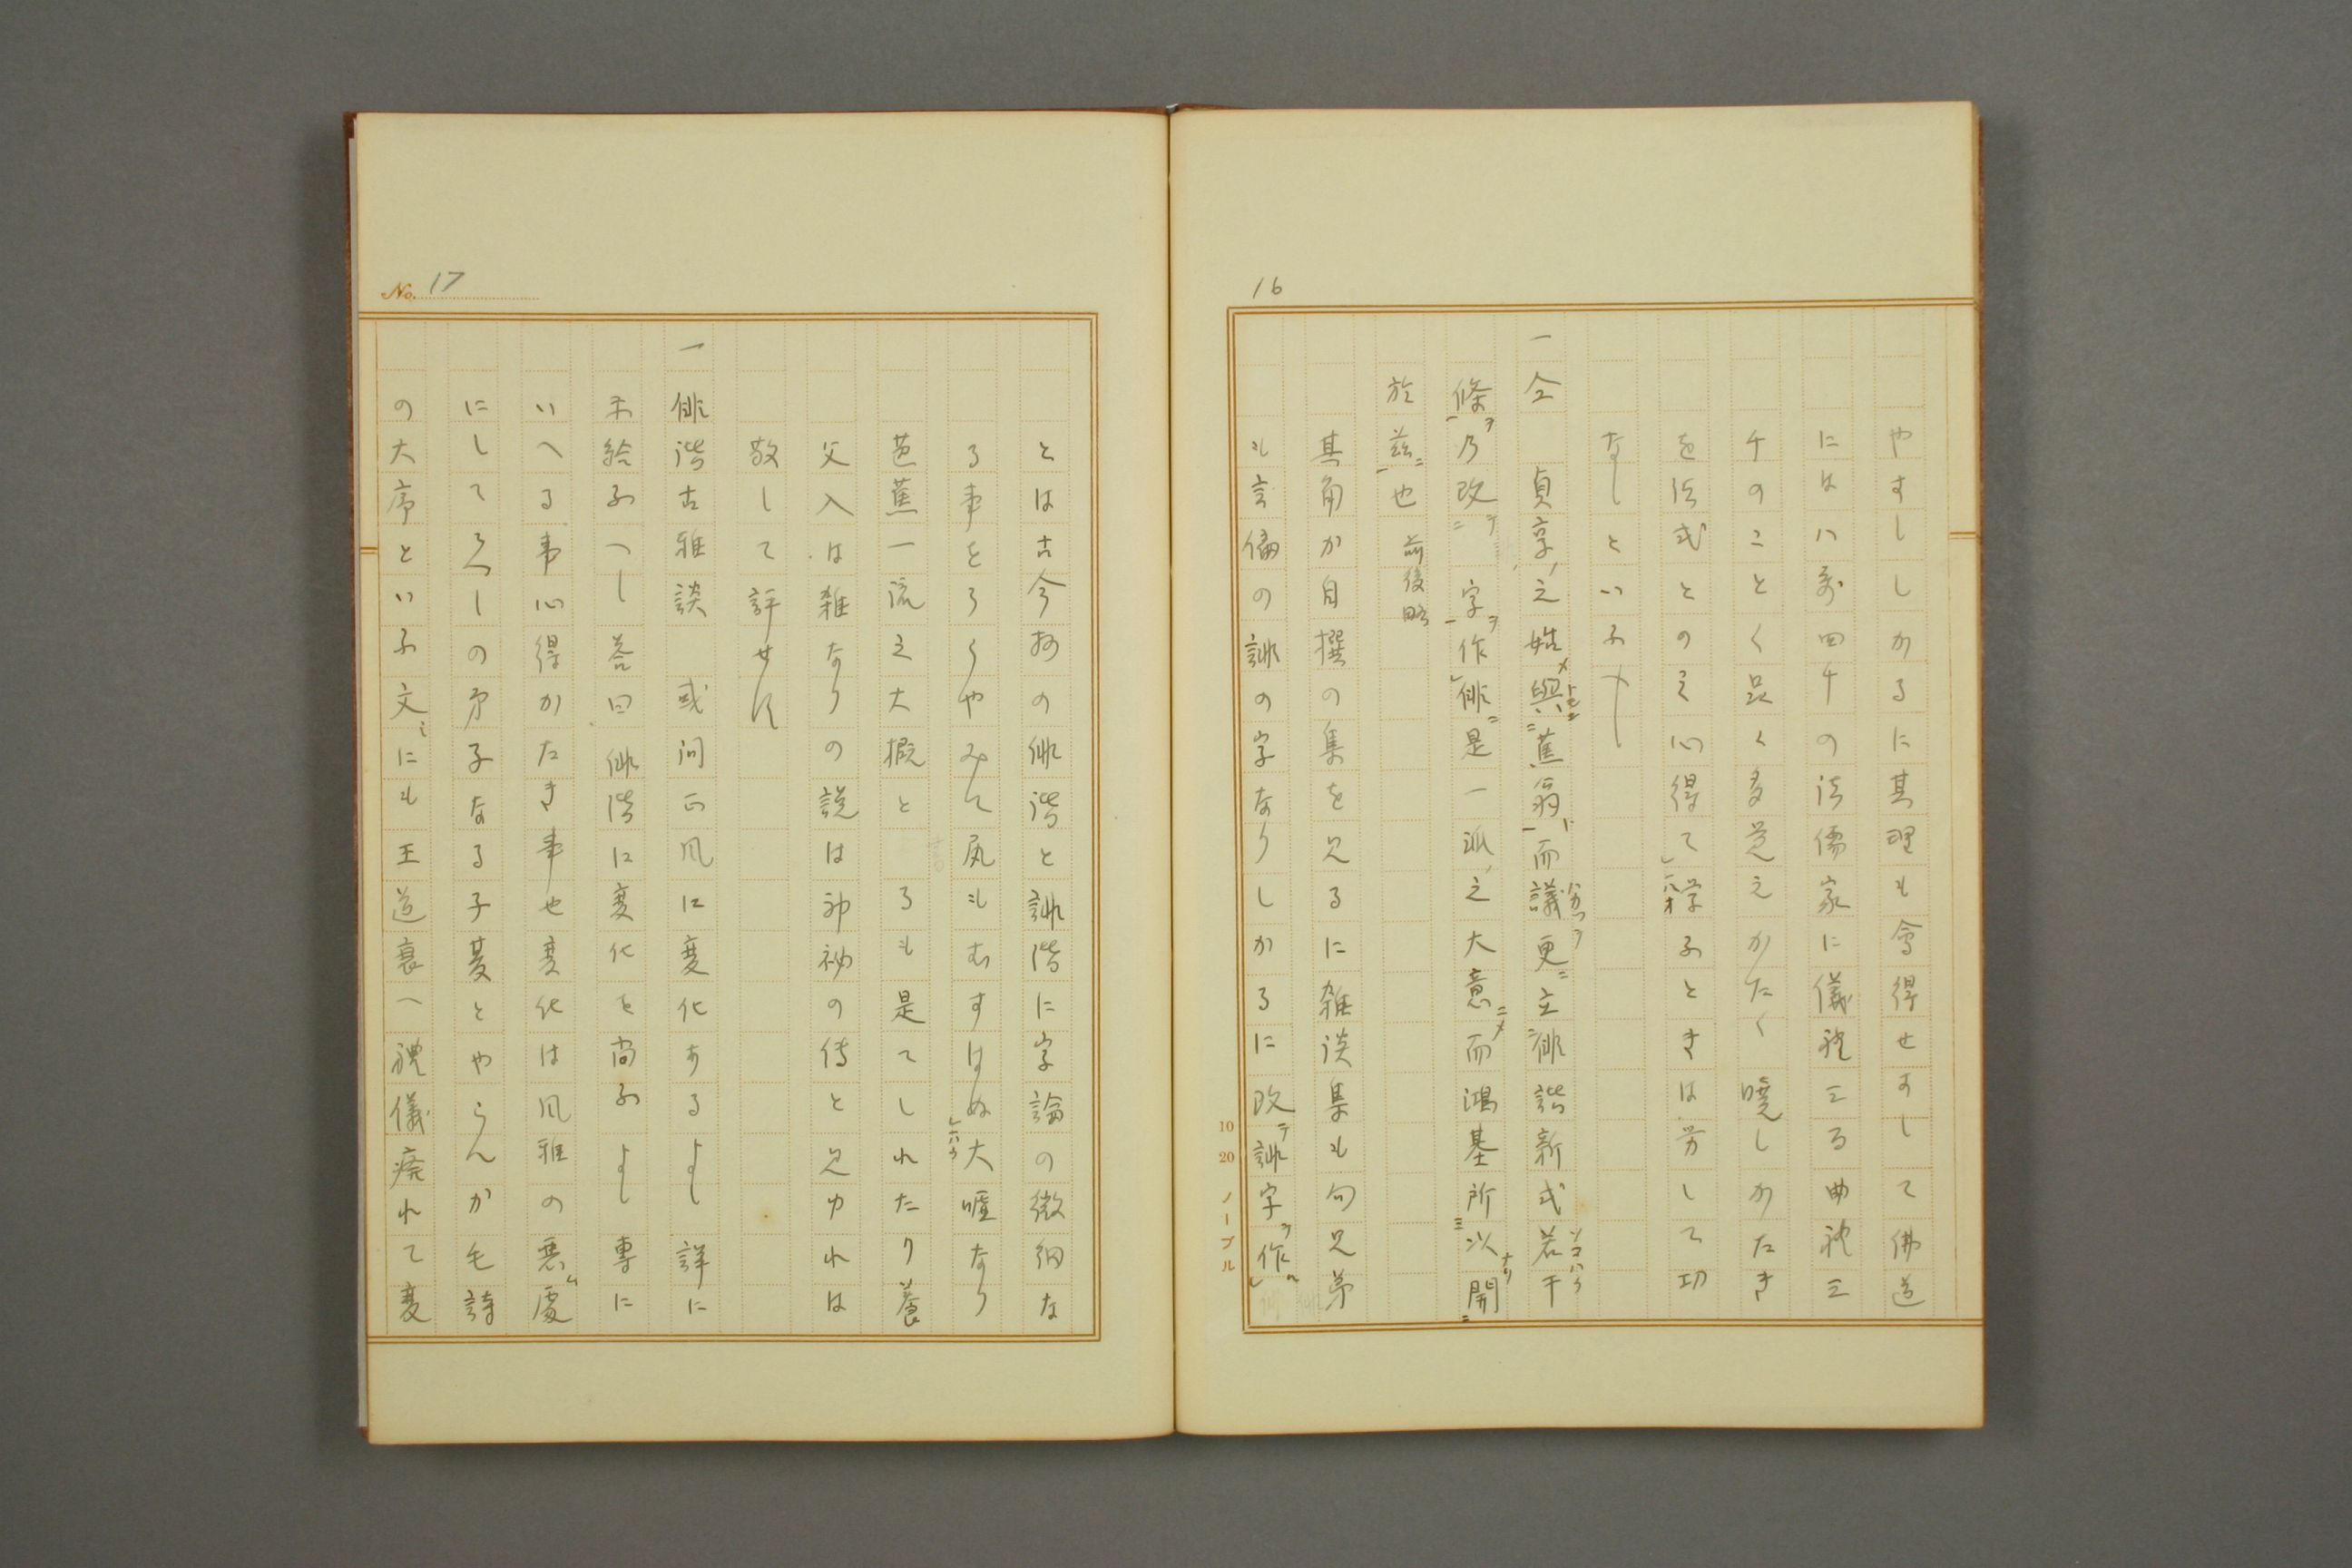 16
やすししかるに其理も會得せすして佛道
には八萬四千の法儒家に儀礼三る曲礼三
千のことく品く多覚えかたく曉しかたき
を法式とのミ心得て学ふときは労して功
なしといふへし
一全 貞享之始與蕉翁而議更立俳諧新式若干
條乃改 字作俳是一派之大意而鴻基所以開
於茲也 前後略
其角か自撰の集を见るに雑談集も句兄弟
も言偏の誹の字なりしかるに改誹字作
10 20 ノーブル
No. 17
とは古今抄の俳諧と誹諧に字論の微細な
る事をろうやみて尻もむすはぬ大嘘なり
芭蕉一流之大概と るも是てしれたり養
父入は雑なりの説は神祕の傳と见ゆれは
敬して評せす
一俳諧古雅談 或问正风に変化するよし詳に
示給ふへし答曰俳諧に変化を尚ふよし專に
いへる事心得かたき事也変化は风雅の悪處
にしてろへしの弟子なる子葽とやらんか毛詩
の大序といふ文にも王道衰へ禮儀癈れて変